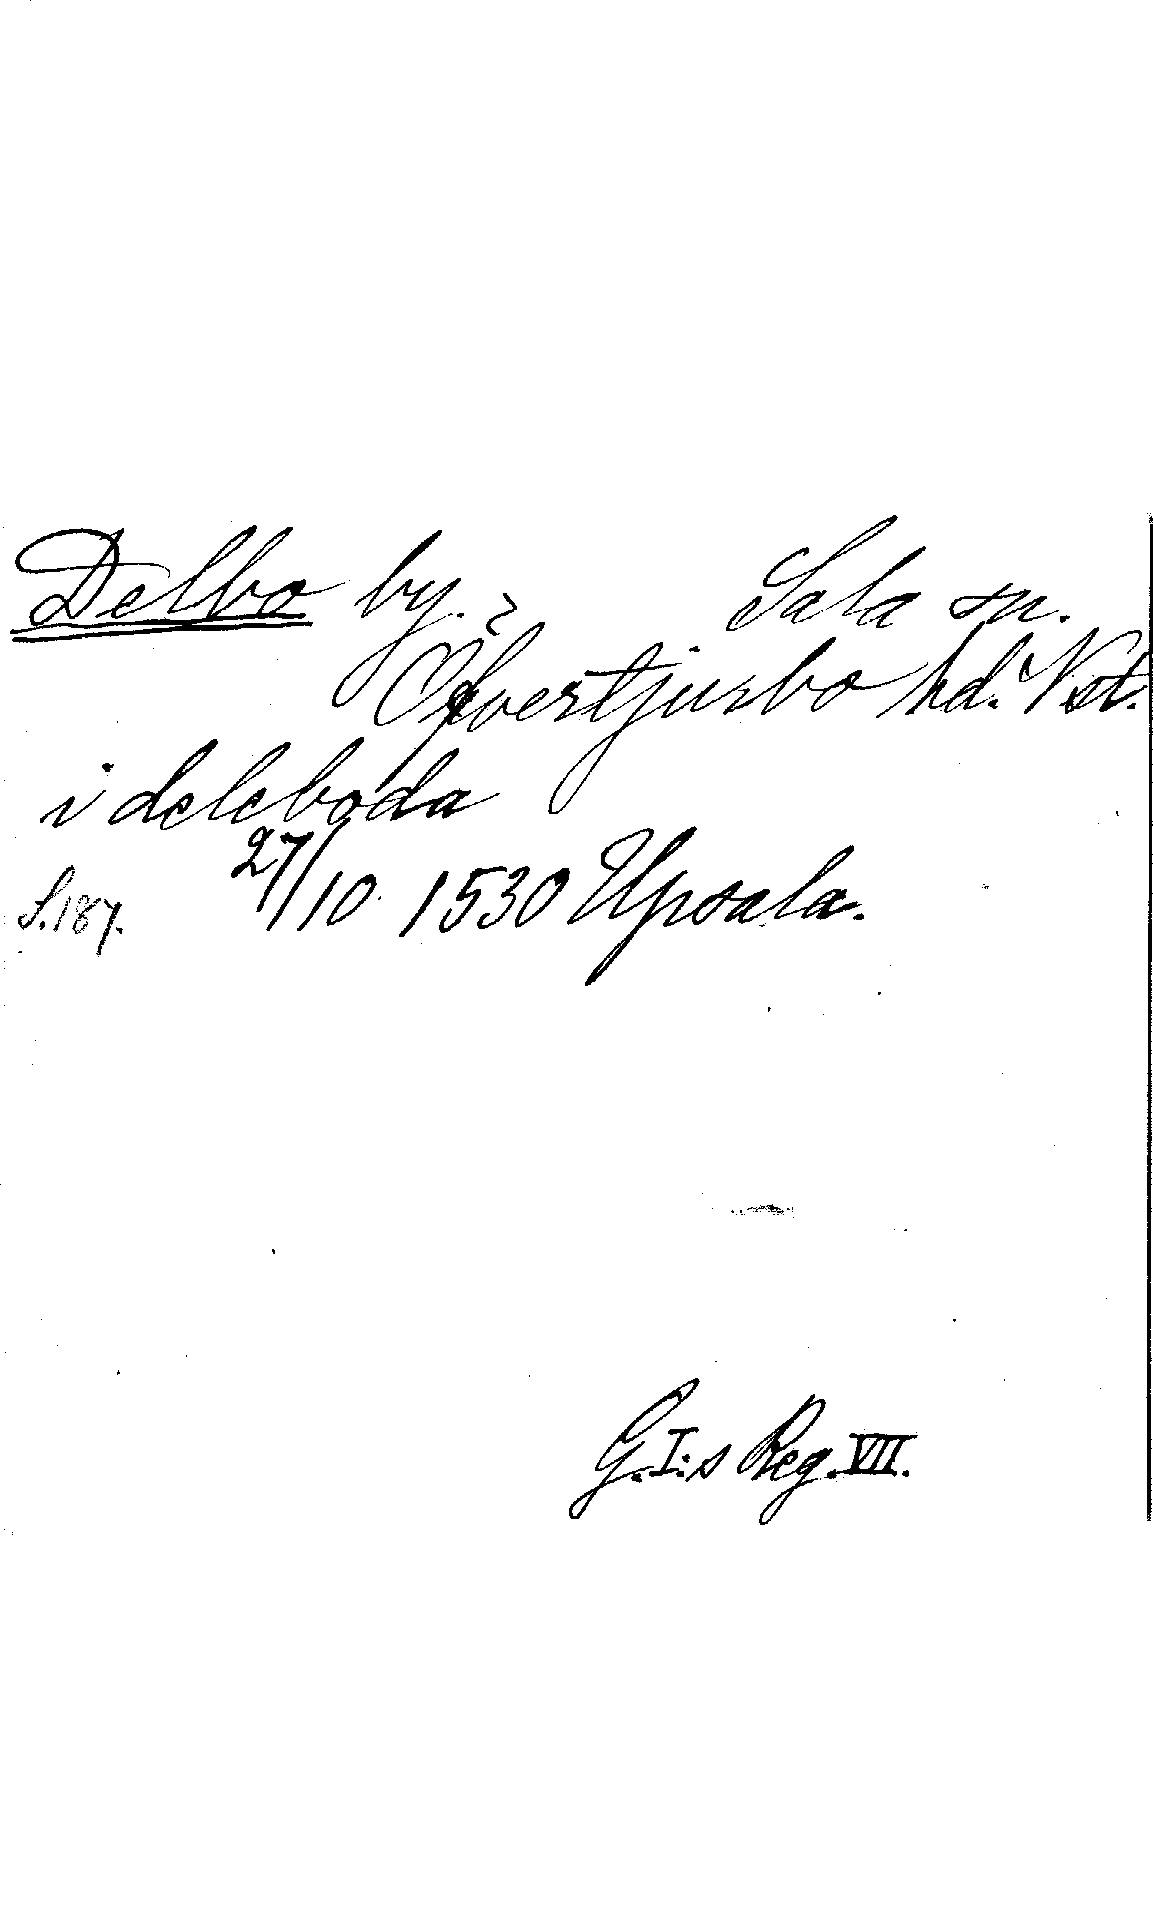 Delbo by. Sala sn.
Öfvertjurbo hd. Vst.
i deleboda
S. 187. 27/10 1530 Upsala.
G. I:s Reg. VII.